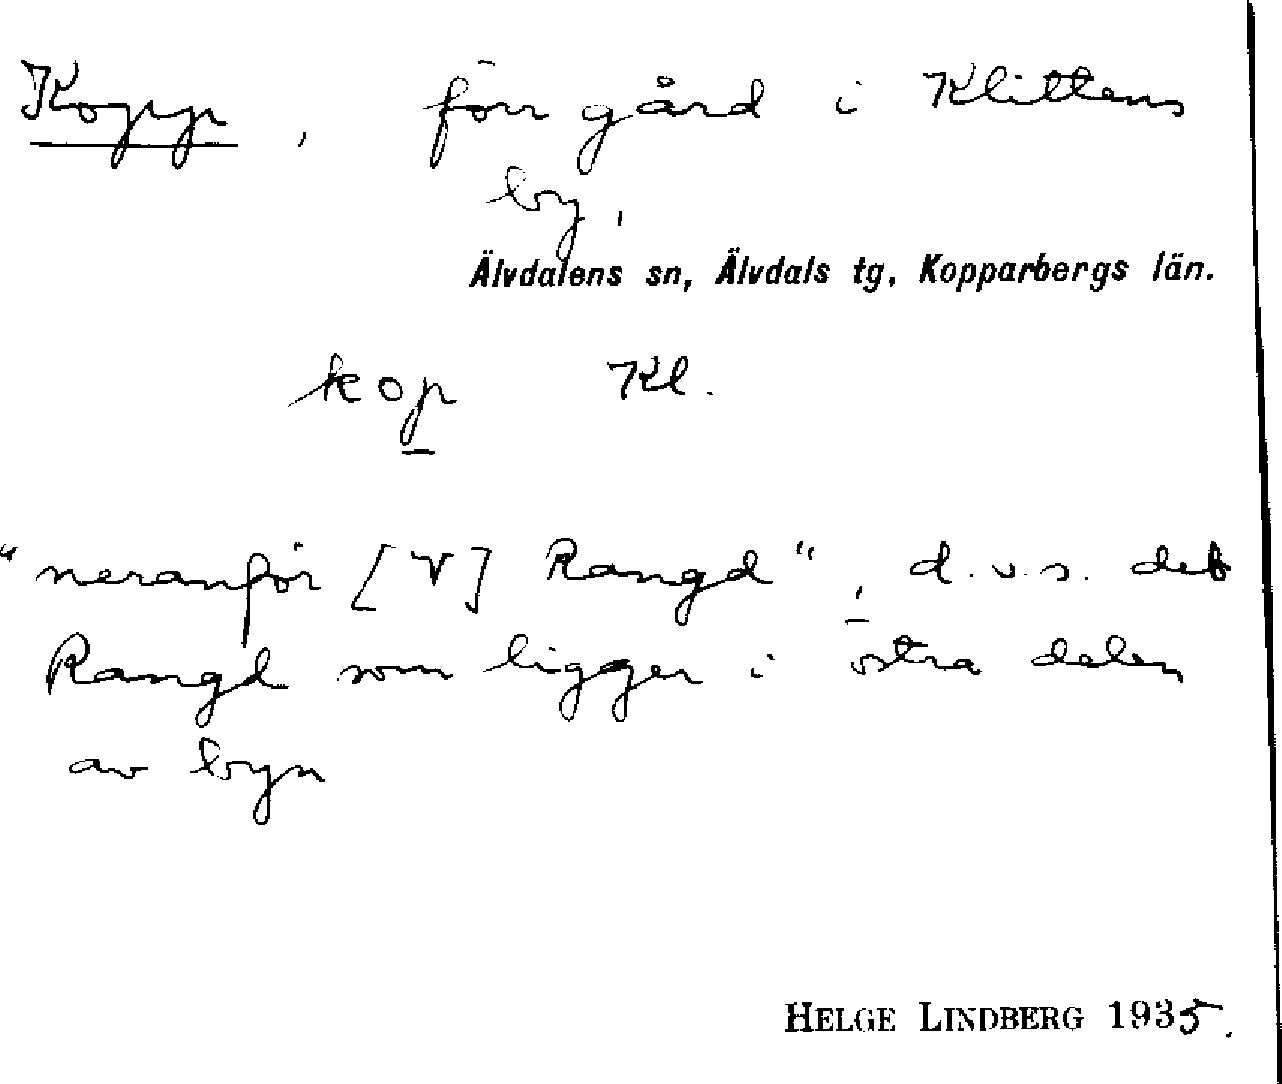 Kopp, förr gård i Klittens
by,
Älvdalens sn, Älvdals tg, Kopparbergs län.
kop Kl.
"neranför [V] Rangd", d.v.s. det
Rangd som ligger i östra delen
av byn
HELGE LINDBERG 1935.